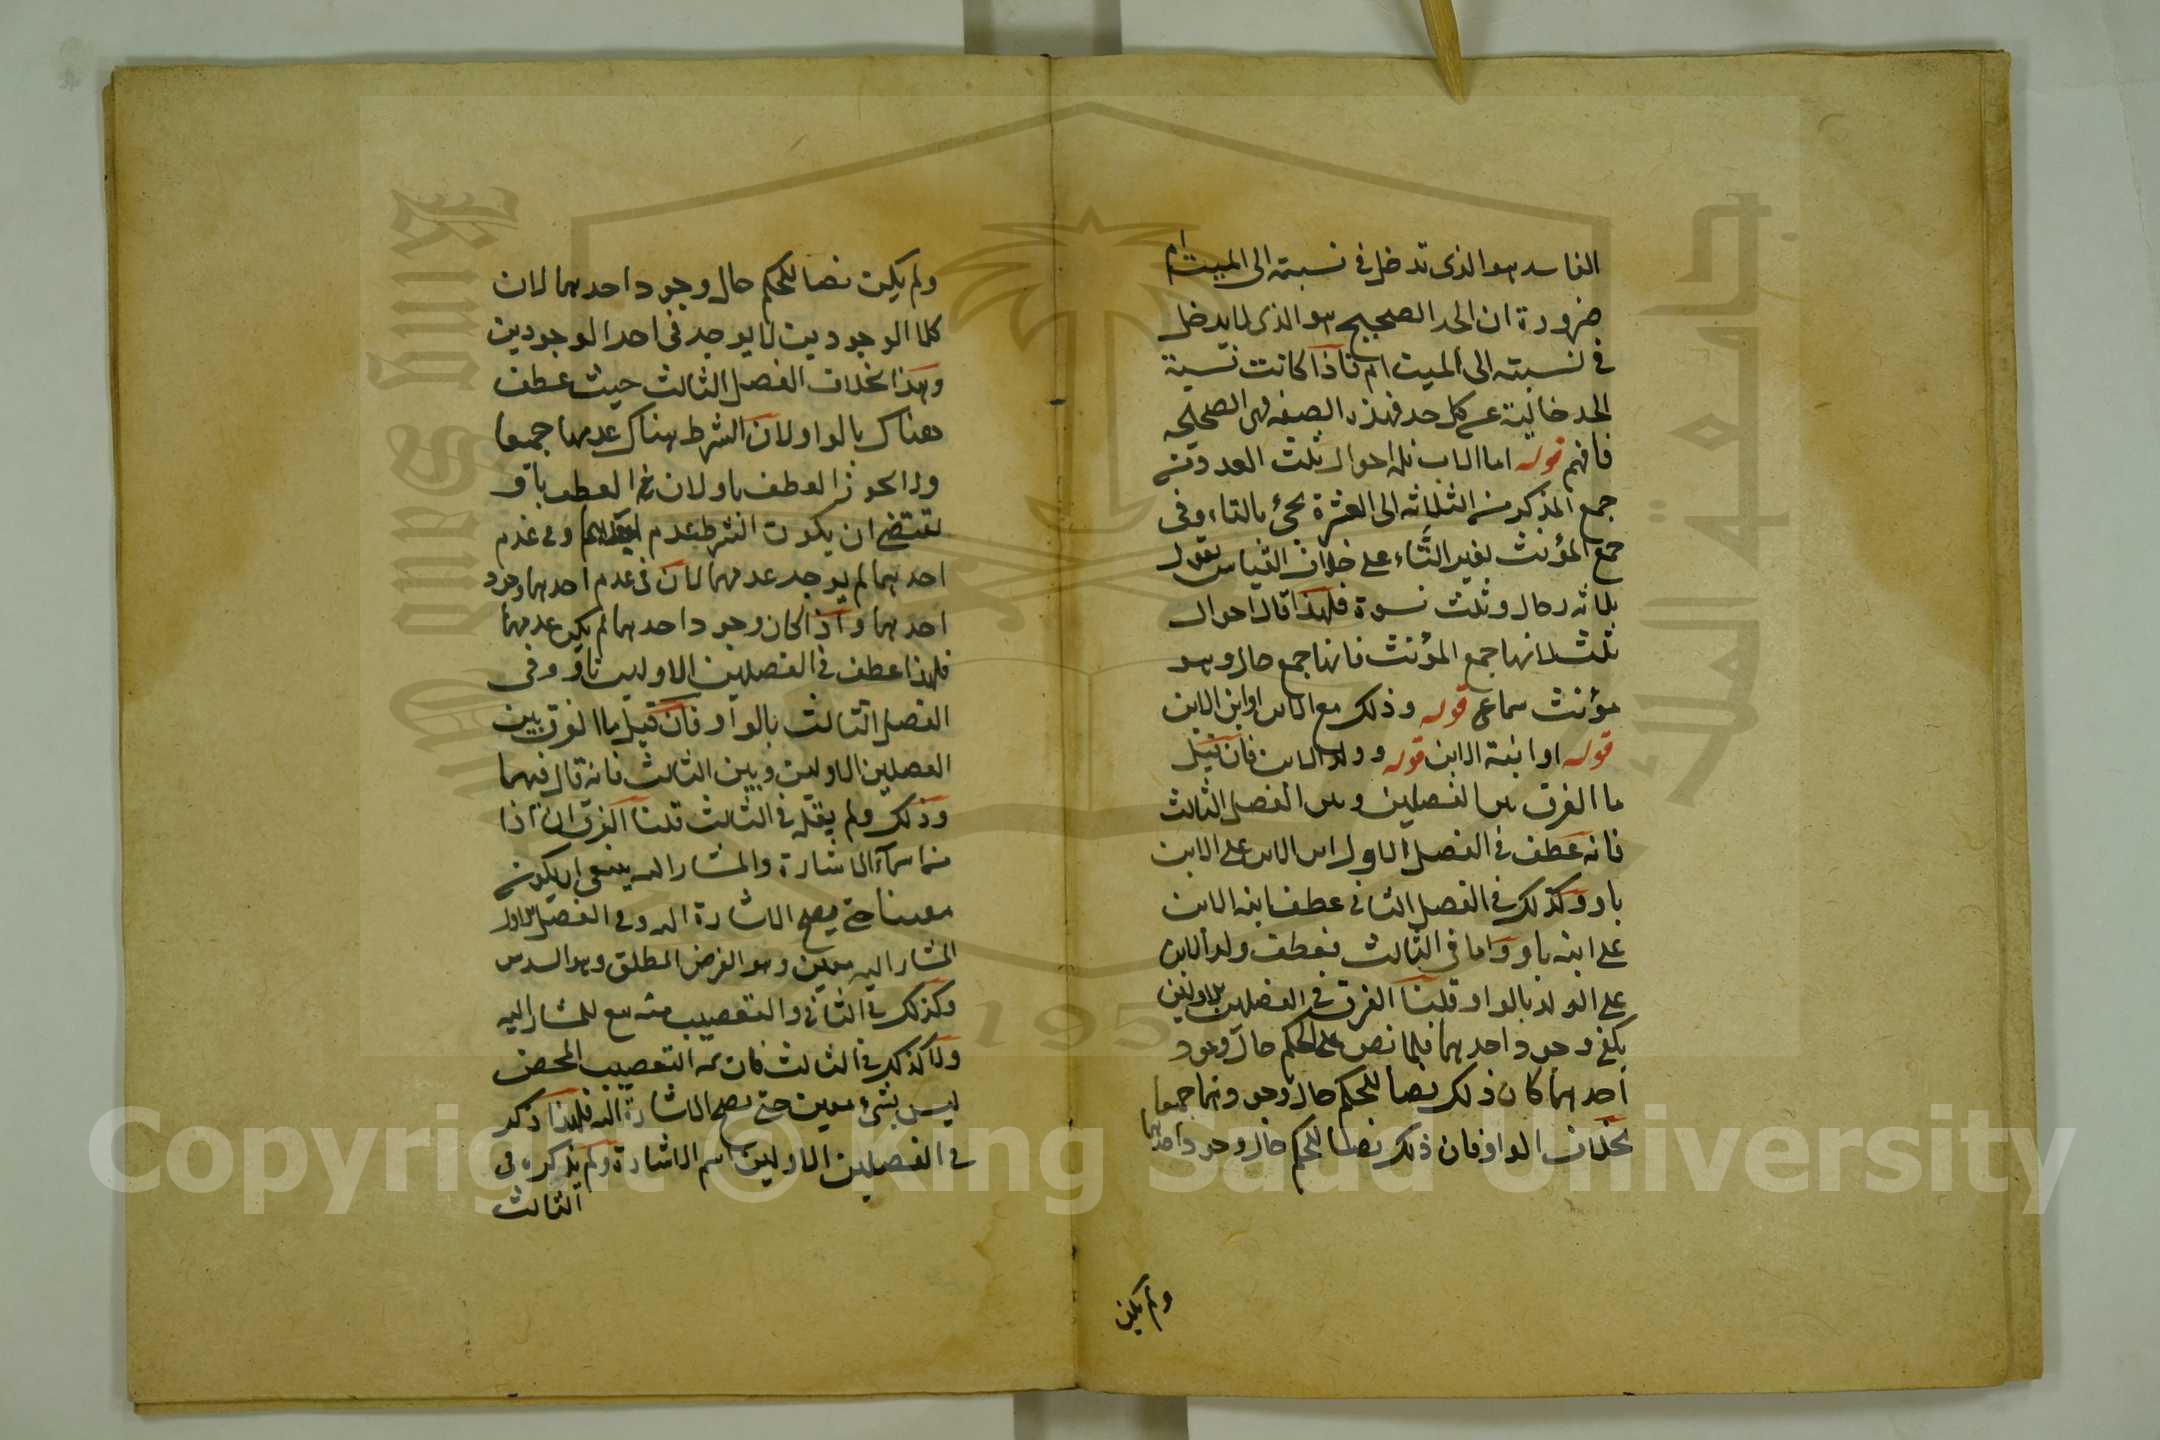 الفاسد هو الذى تدخل فى نسبته الى الميت ام
ضرورة ان الجد الصحيح هو الذى لا يدخل
فى نسبته الى الميت ام فاذا كانت نسبة
الجد خالية عن كل جد فهذه الصفه فهى الصحيحه
فافهم قوله اما الاب فله احوال ثلث العدد من
جمع المذكر من الثلاثه الى العشرة يجئ بالتاء وفى
جمع المؤنث بغير التاء على خلاف القياس يقول
ثلاثه رجال وثلث نسوة فلهذا قال احوال
ثلث لانها جمع المؤنث فانها جمع حال وهو
مؤنث سماعى قوله وذلك مع الابن او ابن الابن
قوله او ابنة الابن قوله وولد الابن فان قيل
ما الفرق بين الفصلين وبين الفصل الثالث
فانه عطف فى الفصل الاول ابن الابن على الابن
باو وكذلك فى الفصل الثانى عطف ابنه الابن
على ابنه باو واما فى الثالث فعطف ولد الابن
على الولد بالواو قلنا الفرق فى الفصلين الاولين
يكفى وجود احدهما فلما نص على الحكم حال وجود
احدهما كان ذلك نصا للحكم حال وجودهما جميعا
بخلاف الواو فان ذلك نصا للحكم حال وجود احدهما
ولم يكن
ولم يكن نصا للحكم حال وجود احدهما لان
كلا الوجودين لا يوجد فى احد الوجودين
وهذا بخلاف الفصل الثالث حيث عطف
هناك بالواو لان الشرط هناك عدمهما جميعا
ولا يجوز العطف باو لان فى العطف باو
يقتضى ان يكون الشرط عدم احدهما وفى عدم
احدهما لم يوجد عدمهما لان فى عدم احدهما وجود
احدهما واذا كان وجود احدهما لم يكن عدمهما
فلهذا عطف فى الفصلين الاولين باو وفى
الفصل الثالث بالواو فان قيل ما الفرق بين
الفصلين الاولين وبين الثالث فانه قال فيهما
وذلك ولم يقله فى الثالث قلنا الفرق ان ذا
من اسماء الاشارة والمشار اليه ينبغى ان يكون
معينا حتى يصح الاشارة اليه وفى الفصل الاول
المشار اليه معين وهو الفرض المطلق وهو السدس
وكذلك فى الثانى والتعصيب منه مع للمشار اليه
ولا كذلك فى الثالث فان فيه التعصيب المحض
ليس بشئ معين حتى يصح الاشارة اليه فلهذا ذكر
فى الفصلين الاولين اسم الاشارة ولم يذكره فى
الثالث